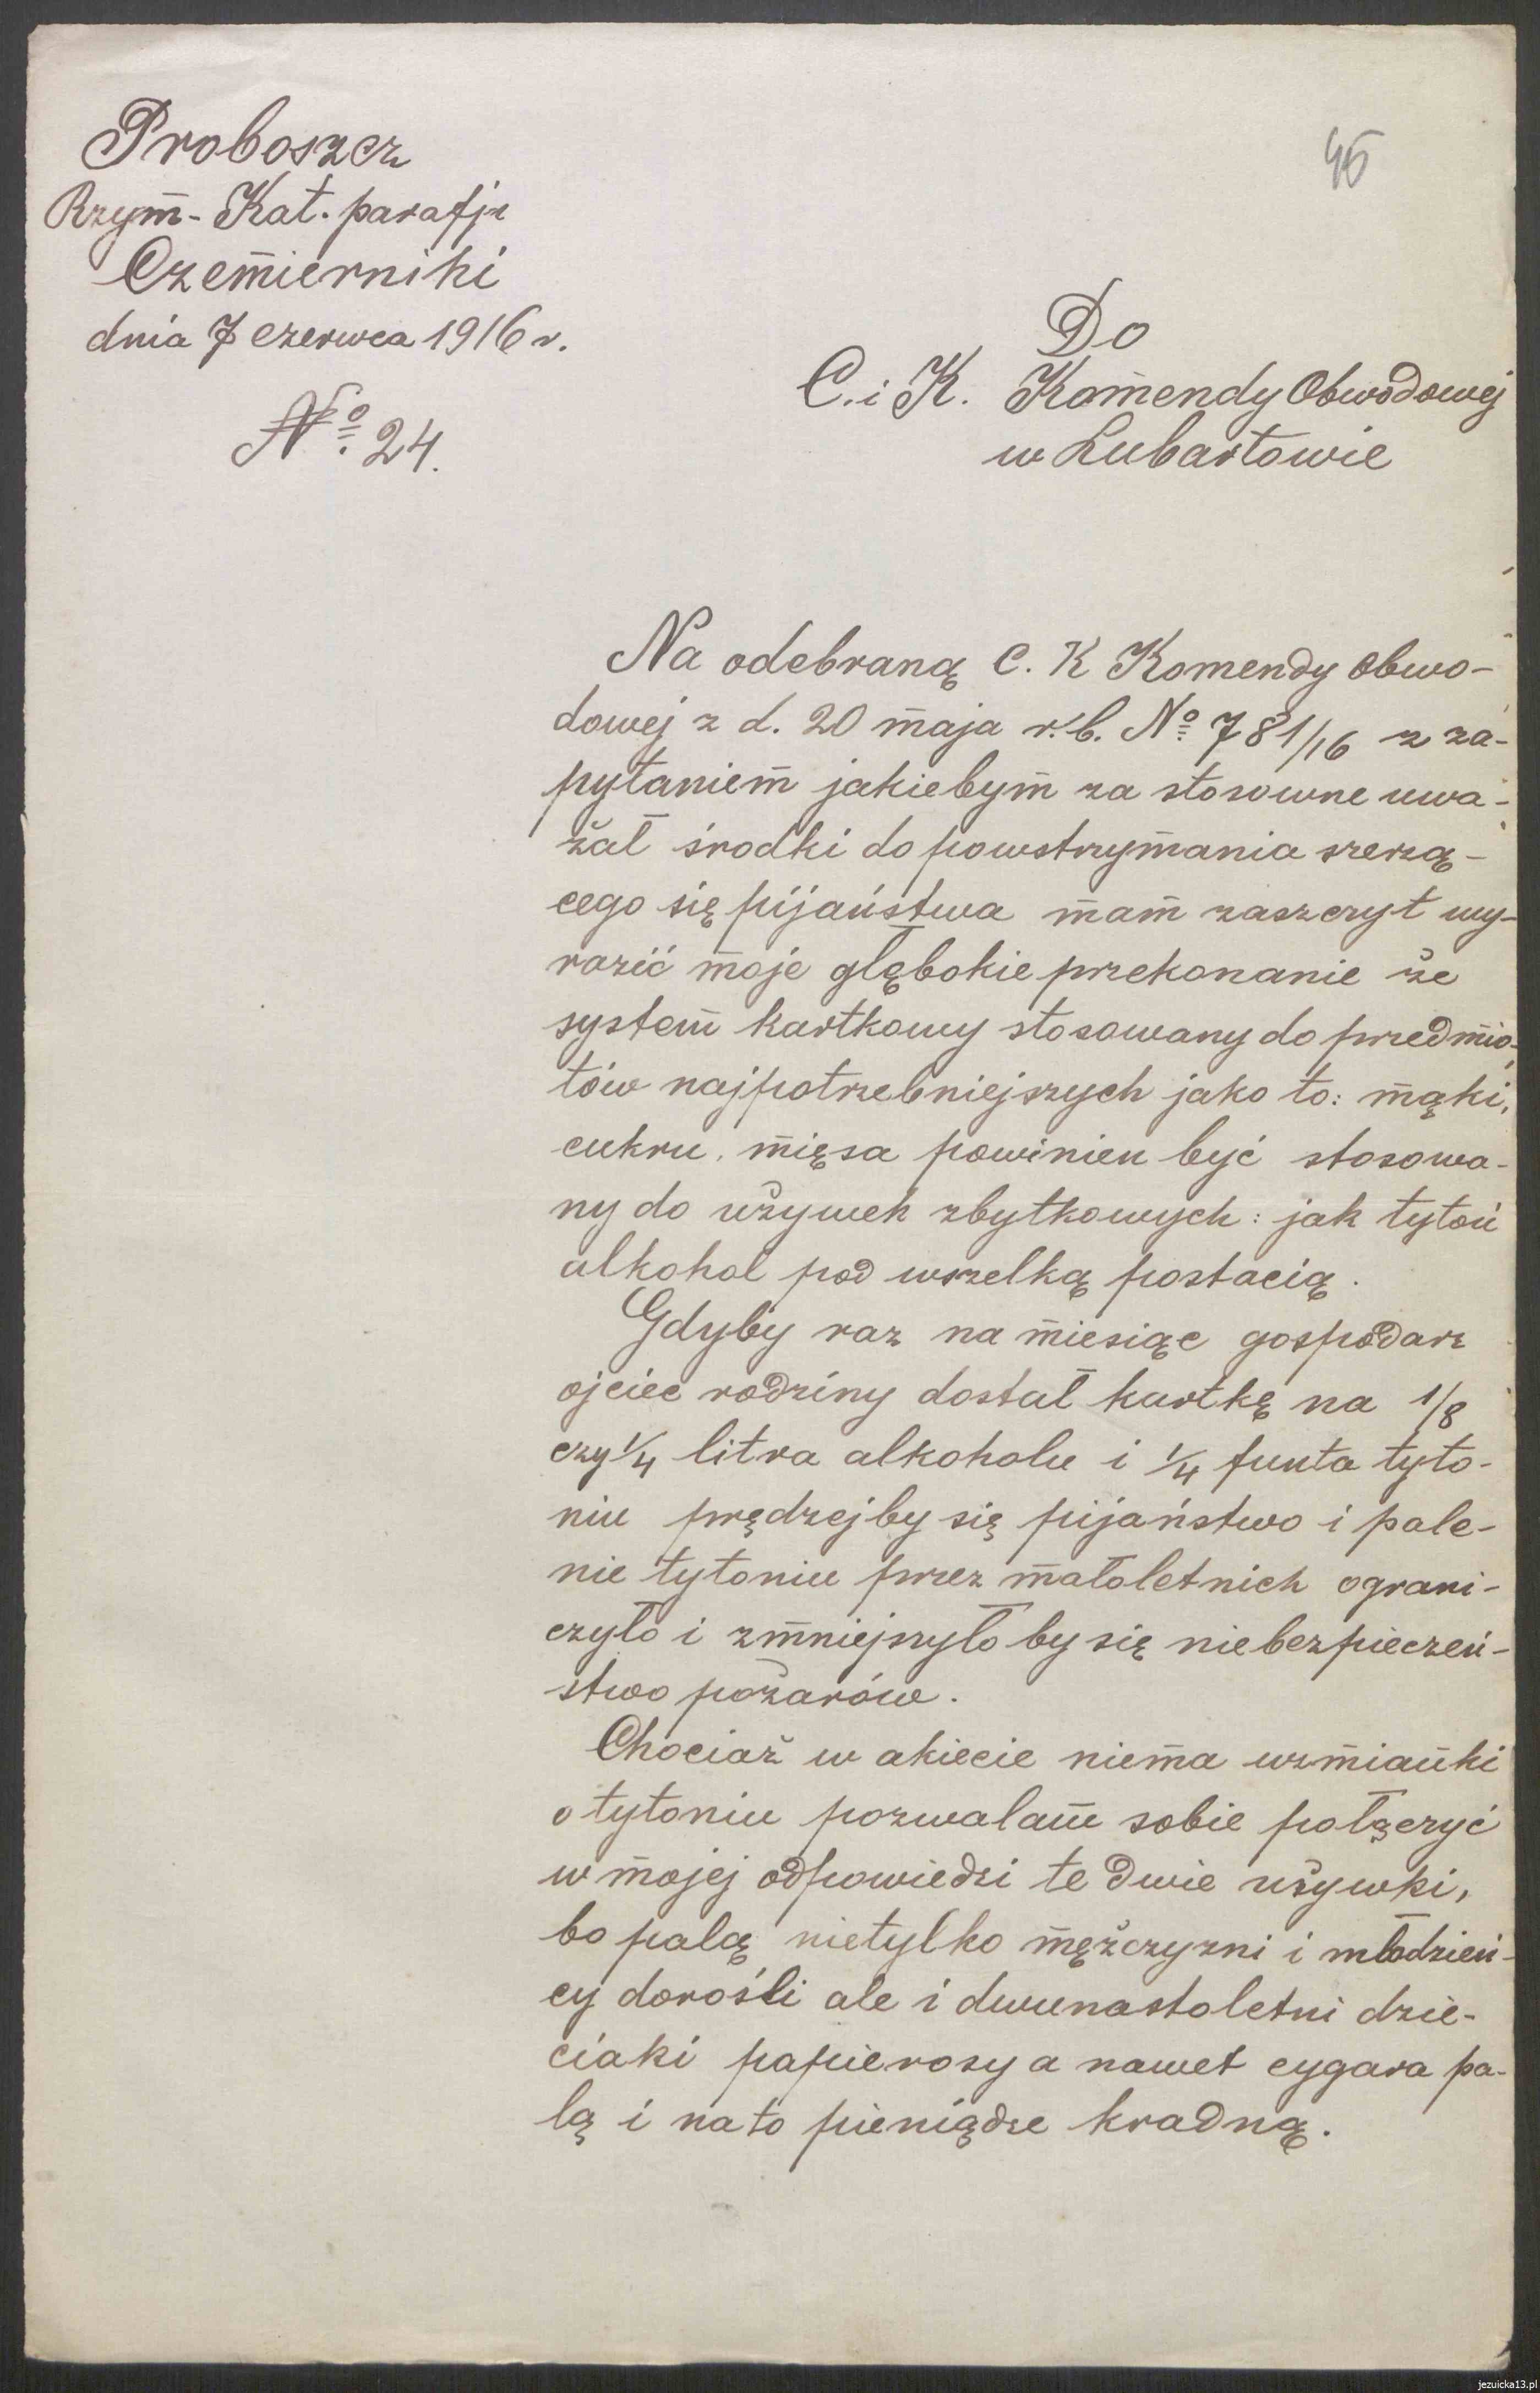 Proboszcz
Rzym-Kat. parafji
Czemierniki
dnia 7 czerwca 1916 r.
No 24.
45
Do
C. i K. Komendy Obwodowej
w Lubartowie
Na odebraną C. K Komendy Obwo-
dowej z d. 20 maja r. b. No 781/16 z za-
pytaniem jakiebym za stosowne uwa-
żał środki do powstrzymania szerzą-
cego się pijaństwa mam zaszczyt wy-
razić moje głębokie przekonanie że
system kartkowy stosowany do przedmio-
tów najpotrzebniejszych jako to: mąki,
cukru, mięsa powinien być stosowa-
ny do używek zbytkowych: jak tytoń
alkohol pod wszelką postacią.
Gdyby raz na miesiąc gospodarz
ojciec rodziny dostał kartkę na 1/8
czy 1/4 litra alkoholu i 1/4 funta tyto-
niu prędzejby się pijaństwo i pale-
nie tytoniu przez małoletnich ograni-
czyło i zmniejszyło by się niebezpieczeń-
stwo pożarów.
Chociaż w akiecie niema wzmianki
o tytoniu pozwalam sobie połączyć
w mojej odpowiedzi te dwie używki,
bo palą nietylko mężczyzni i młodzień-
cy dorośli ale i dwunastoletni dzie-
ciaki papierosy a nawet cygara pa-
lą i na to pieniądze kradną.
jezuicka13.pl